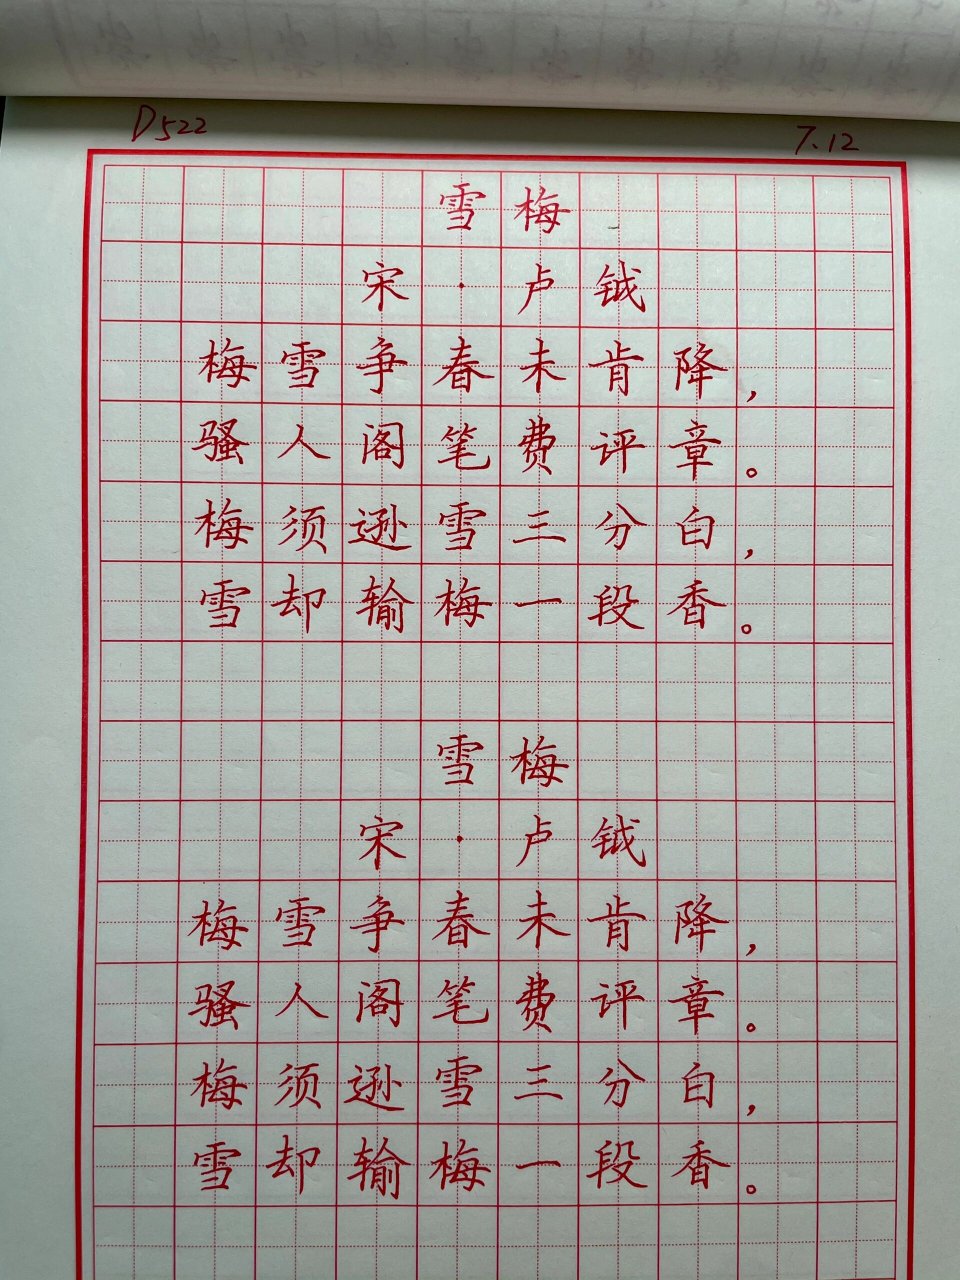 D522 7.12
雪梅
宋·卢钺
梅雪争春未肯降，
骚人阁笔费评章。
梅须逊雪三分白，
雪却输梅一段香。
雪梅
宋·卢钺
梅雪争春未肯降，
骚人阁笔费评章。
梅须逊雪三分白，
雪却输梅一段香。